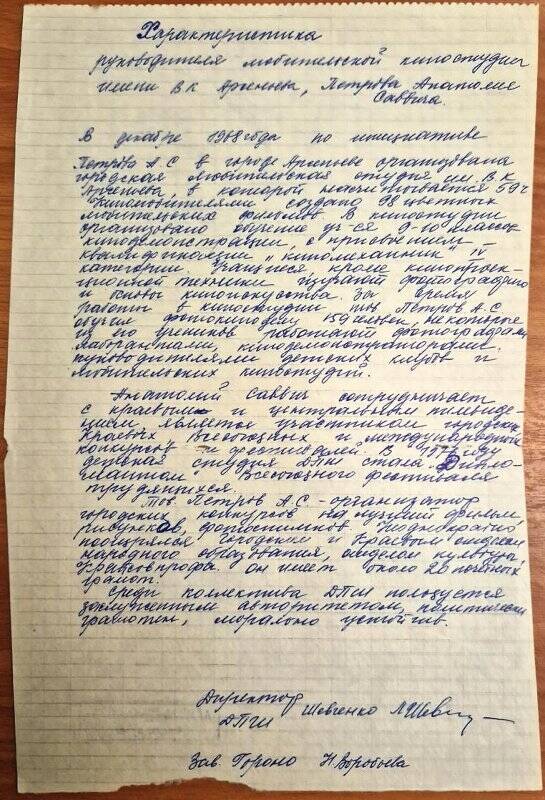 Характеристика
руководителя любительской киностудии
имени В К Арсеньева, Петрова Анатолия
Саввича.
В декабре 1968 года по инициативе
Петрова А.С в городе Арсеньеве организована
городская любительская студия им. В.К
Арсеньева, в которой насчитывается 59 ч
"Кинолюбителями" создано 98 цветных
любительских фильмов. В киностудии
организовано обучение уч-ся 9-10 классов
кинодемонстрации, с присвоением
квалификации "киномеханник" IV
категории. Учащиеся кроме кинопроек-
ционной техники изучают фотографию
и основы киноискусства. За время
работы в киностудии тов. Петров А.С.
обучил фотокиноделу 159 человек. Некоторые
из его учеников работают фотографами
лаборантами, кинодемонстраторами,
руководителями детских клубов и
любительских киностудий.
Анатолий Саввич сотрудничает
с краевым и центральным телевиде-
нием является участником городских
Краевых Всесоюзных и международных
конкурсов и фестивалей. В году
детская студия ДПШ стала Дипло-
мантом Всесоюзного фестиваля
трудящихся.
Тов. Петров А.С - организатор
городских конкурсов на лучший фильм,
рисунков, фотоснимков. Неоднократно
поощрялся Городским и Краевым отделом
народного образования, отделом культуры
Крайсовпрофа. он имеет около 20 почетных
грамот.
Среди коллектива ДПШ пользуется
заслуженным авторитетом, политически
грамотен, морально устойчив.
Директор
ДПШ Шевченко
Зав. Гороно Н. Воробьева